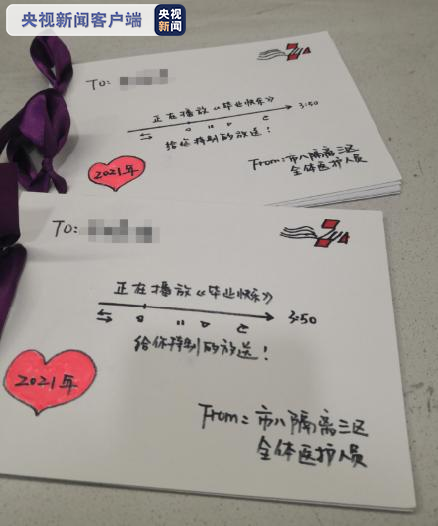 央视新闻客户端
央视新闻
To:
正在播放《毕业快乐》
3:50
给你特别的放送！
2021年
From: 市八隔离三区
全体医护人员
To:
正在播放《毕业快乐》
3:50
给你特别的放送！
2021年
From: 市八隔离三区
全体医护人员